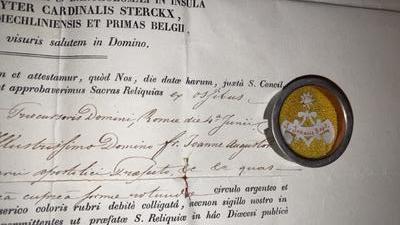 YTER CARDINALIS STERCKX,
MECHLINIENSIS ET PRIMAS BELGII,
visuris salutem in Domino.
et attestamur, quòd Nos, die datæ harum, juxtà S. Concil.
et approbaverimus Sacras Reliquias ex ossibus
Præcursoris Domini, Romæ die 4a Junii
Illustrissimo Domino fr. Joanne Augustino
apostolici Præfecto, & & quas
cuprea formæ rotundæ circulo argenteo et
serico coloris rubri debitè colligatâ, necnon sigillo nostro in
ommittentes ut præfatæ S. Reliquiæ in hâc Diœcesi publicè